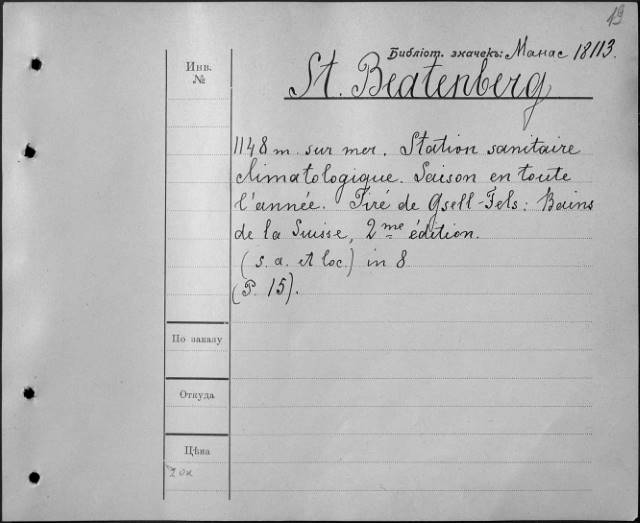 19
Библіот. значекъ: Манас 18113.
Инв.
№
St. Beatenberg
1148 m sur mer. Station sanitaire
climatologique. Saison en toute
l'année. Tiré de Gsell-Fels: Bains
de la Suisse, 2me édition.
(s. a. et loc.) in 8
(P. 15).
По заказу
Откуда
Цѣна